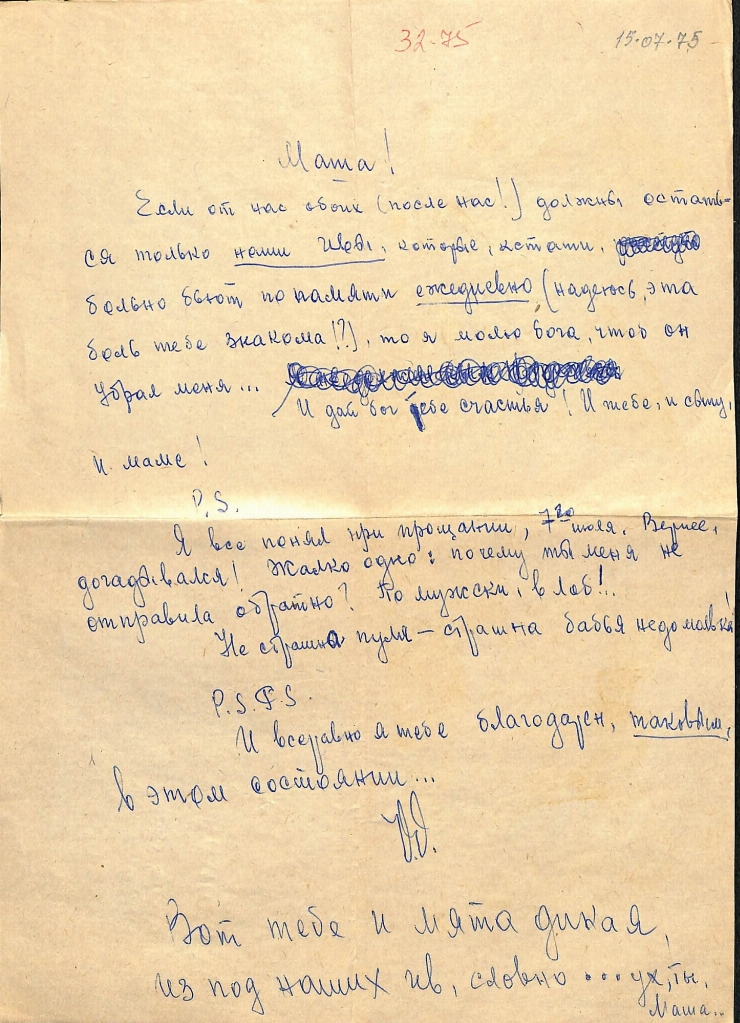 32-75
15.07.75
Маша!
Если от нас обоих (после нас!) должны остать-
ся только наши ивы, которые, кстати,
больно бьют по памяти ежедневно (надеюсь, эта
боль тебе знакома!?), то я молю бога, чтоб он
убрал меня...
И дай бог тебе счастья! И тебе, и свету,
и маме!
P.S.
Я все понял при прощании, 7го июля. Вернее,
догадывался! Жалко одно: почему ты меня не
отправила обратно? По мужски, в лоб!..
Не страшна пуля — страшна бабья недомолвка
P.S.P.S.
И всеравно я тебе благодарен, таковым,
в этом состоянии...
Вот тебе и мята дикая,
из под наших ив, словно ...ух, ты,
Маша..